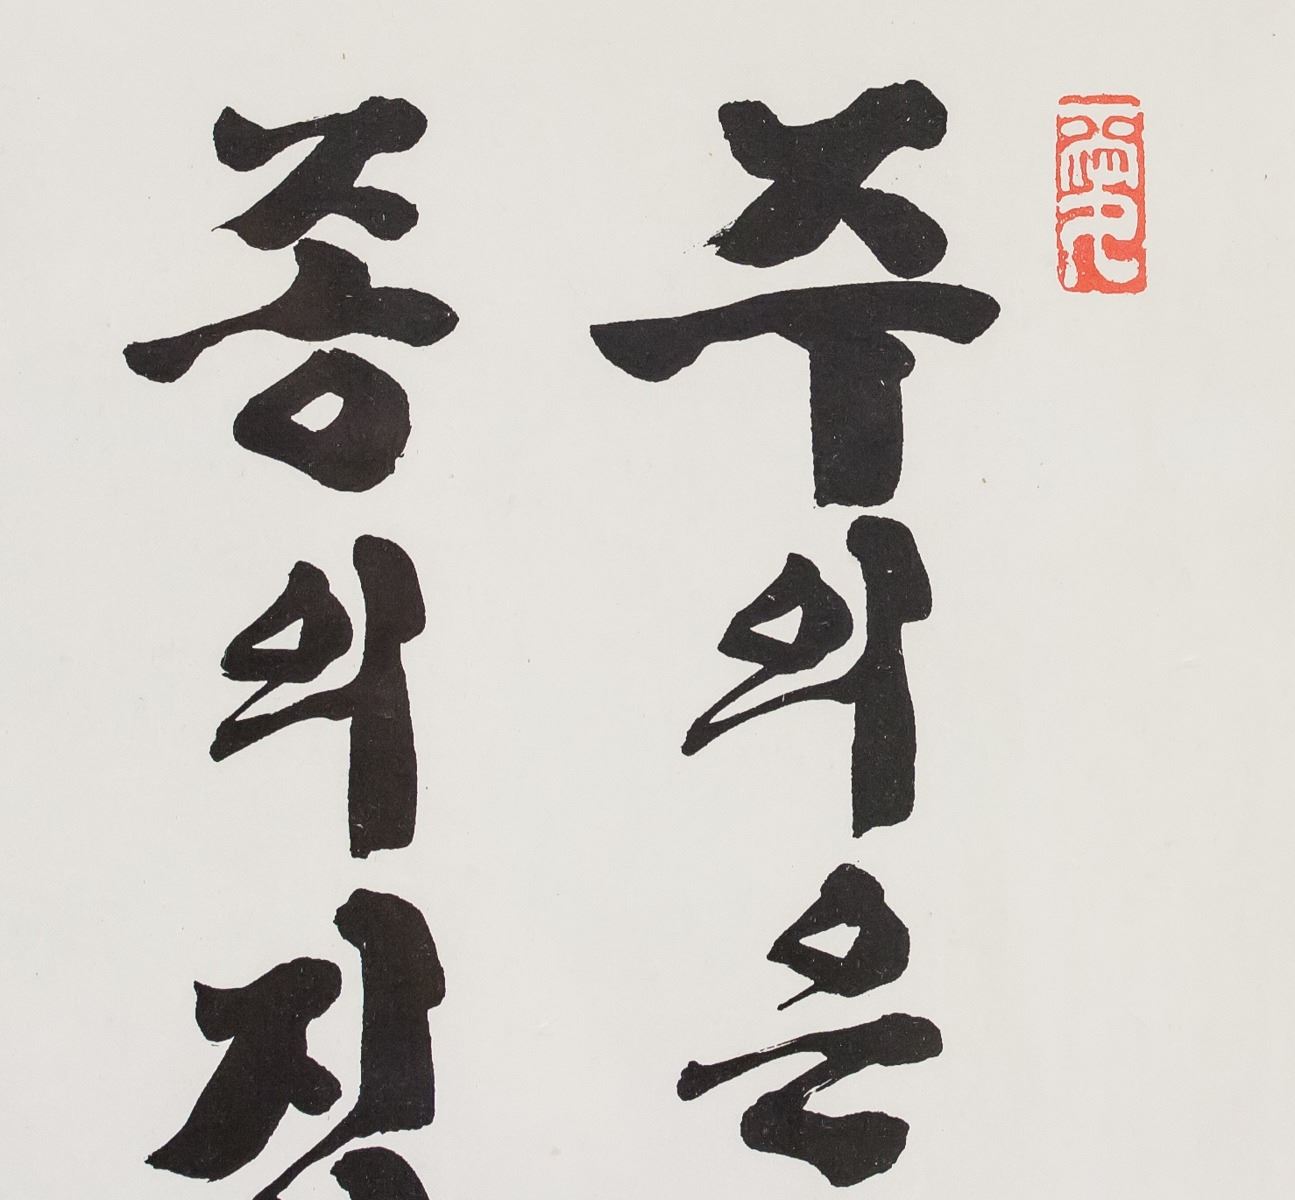 주의은
종의